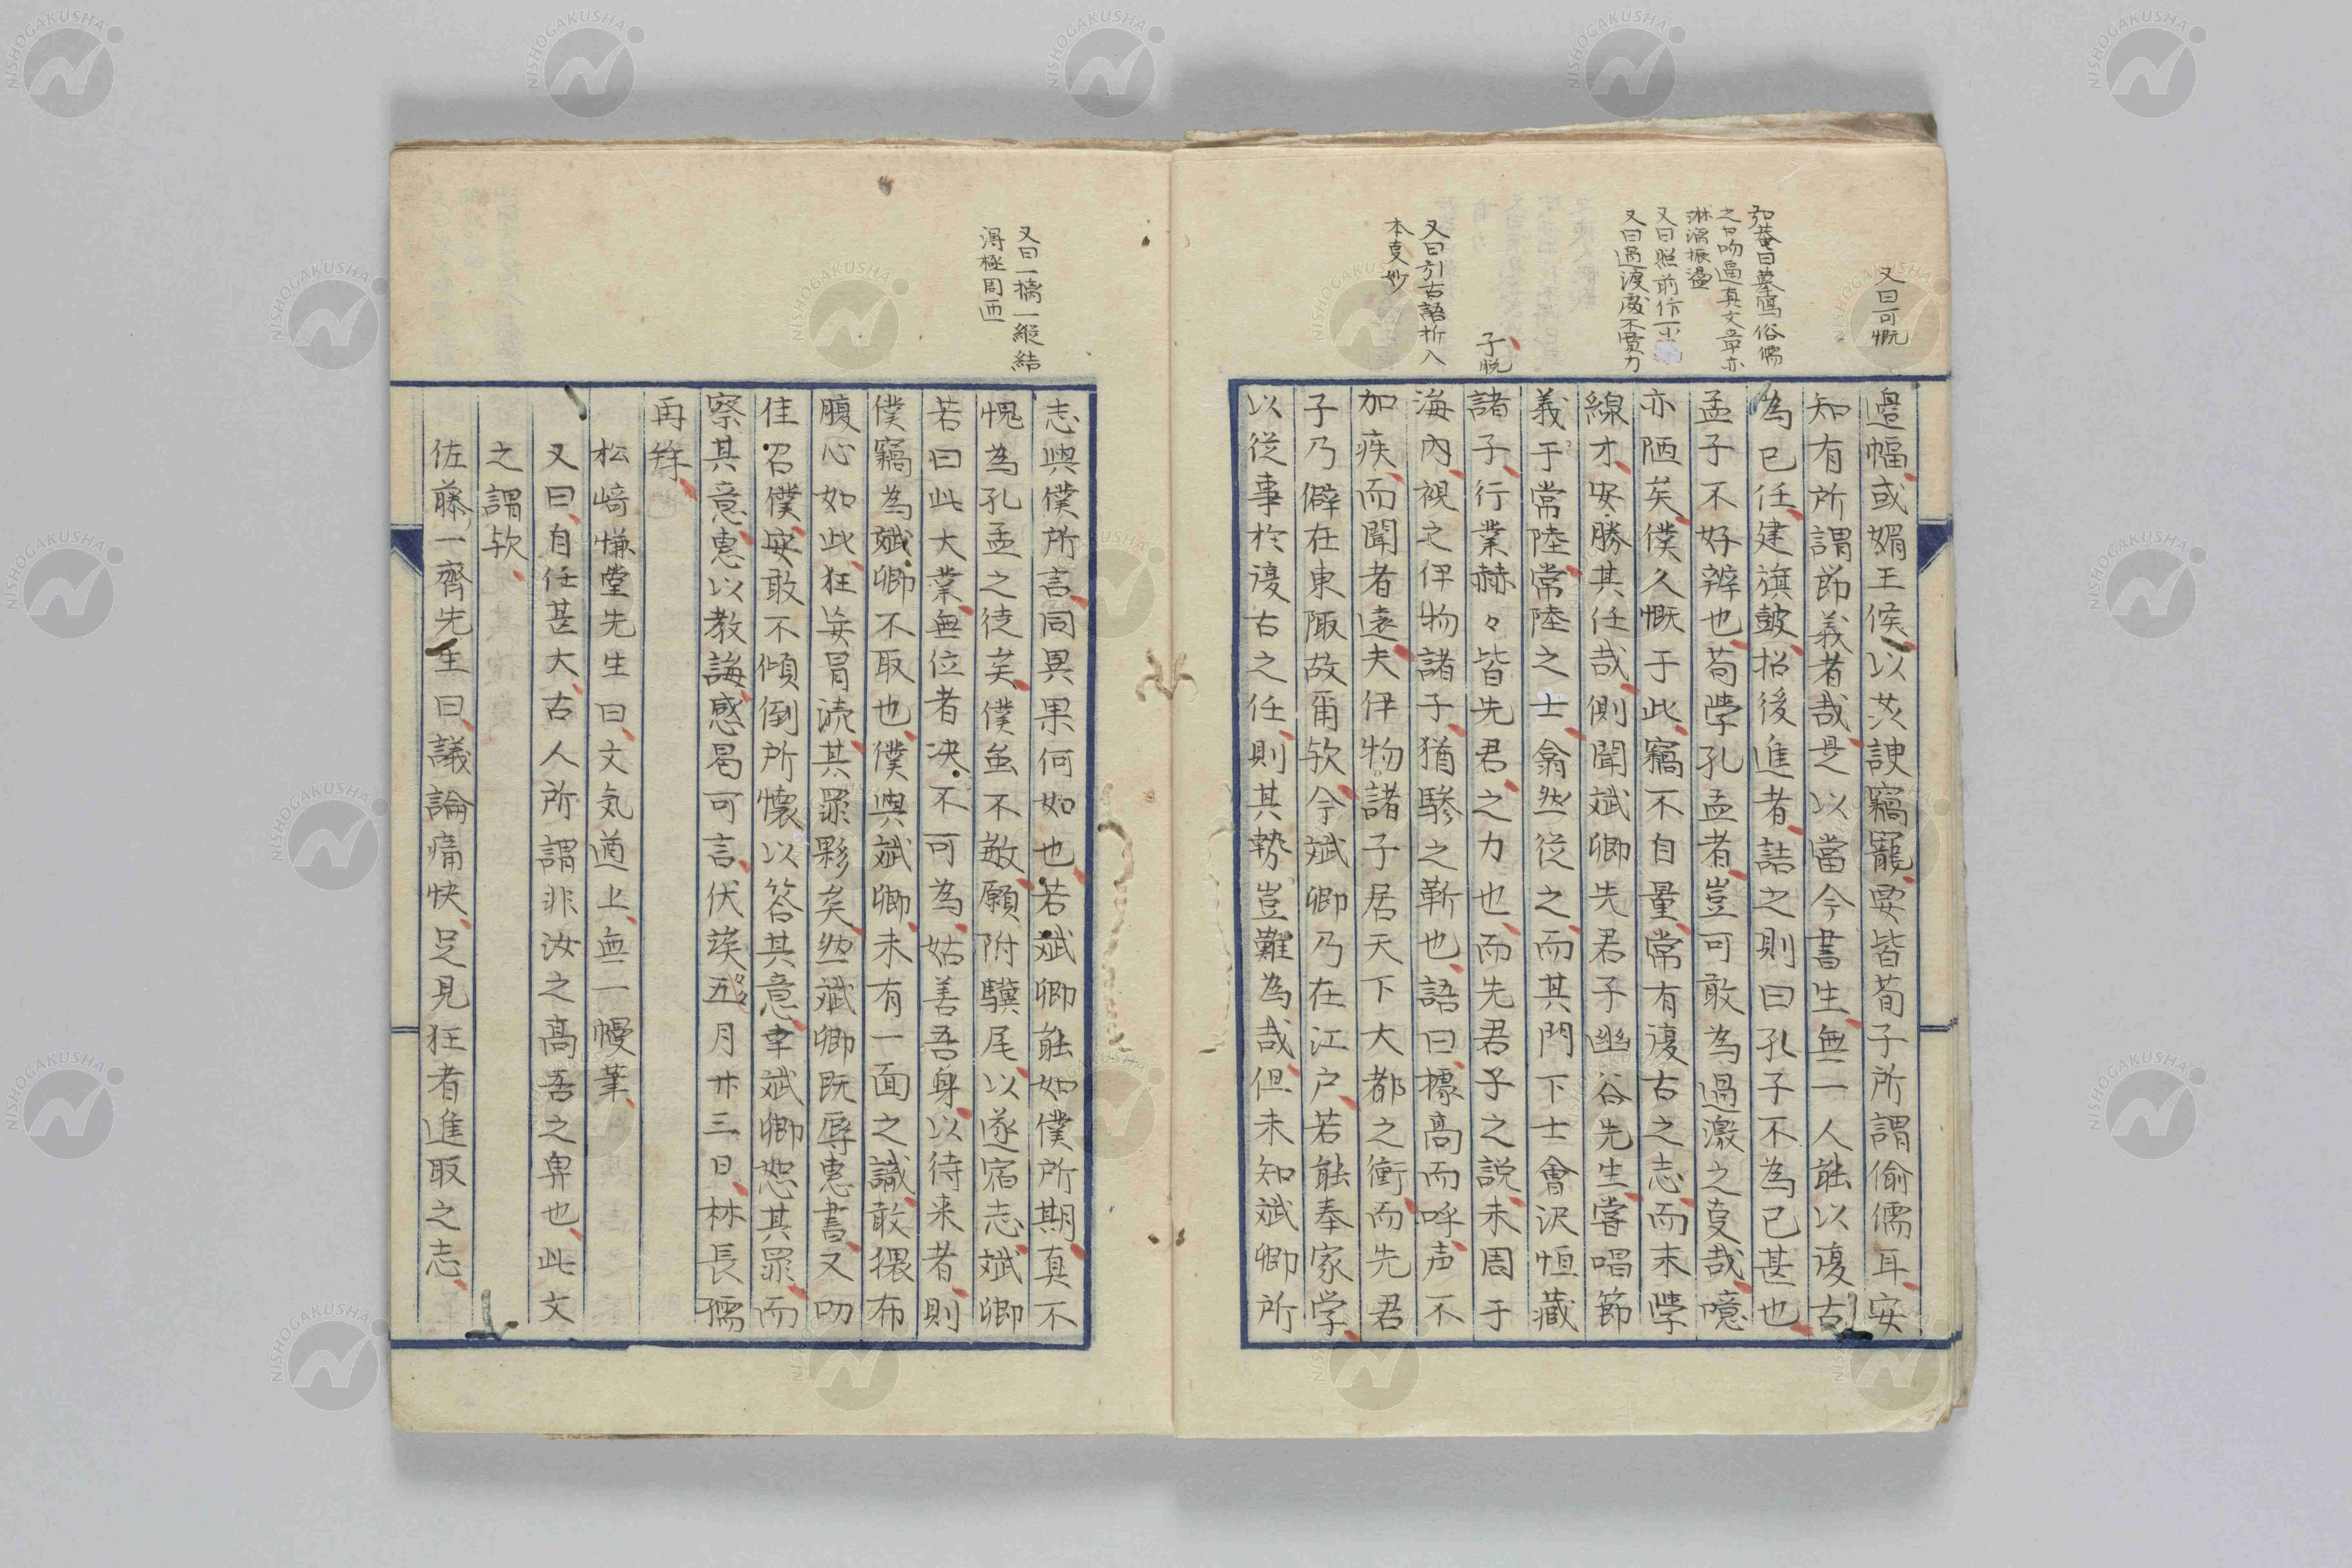 又曰可慨
如菴曰摹寫俗儒
之口吻逼真文章亦
淋漓振盪
又曰照前作一小
又曰過渡處不費力
子脱
又曰引古語折入
本支妙
邉幅或媚王候以茨諛竊寵要皆荀子所謂偷儒耳安
知有所謂節義者哉是以當今書生無一人能以復古
為已任建旗皷招後進者詰之則曰孔子不為已甚也
孟子不好辨也苟學孔孟者豈可敢為過激之㕝哉噫
亦陋矣僕久慨于此竊不自量常有復古之志而末學
線才安勝其任哉側聞斌卿先君子幽谷先生嘗唱節
義于常陸常陸之士翕然從之而其門下士會沢恒藏
諸子行業赫々皆先君之力也而先君子之説未周于
海内視之伊物諸子猶驂之靳也語曰據高而呼声不
加疾而聞者遠夫伊物諸子居天下大都之衝而先君
子乃僻在東陬故爾欤今斌卿乃在江户若能奉家学
以從事於復古之任則其勢豈難為哉但未知斌卿所
又曰一擒一縦結
得極周匝
志與僕所言同異果何如也若斌卿能如僕所期真不
愧為孔孟之徒矣僕虽不敏願附驥尾以遂宿志斌卿
若曰此大業無位者决不可為姑善吾身以待来者則
僕竊為斌卿不取也僕與斌卿未有一面之識敢猥布
腹心如此狂妄冒涜其罪夥矣然斌卿既辱惠書又叨
佳召僕安敢不傾倒所懷以答其意幸斌卿恕其罪而
察其意惠以教誨感曷可言伏竢五月廿三日林長孺
再拜
松﨑慊堂先生曰文気遒上無一慢筆
又曰自任甚大古人所謂非汝之高吾之卑也此文
之謂欤
佐藤一齊先生曰議論痛快足見狂者進取之志